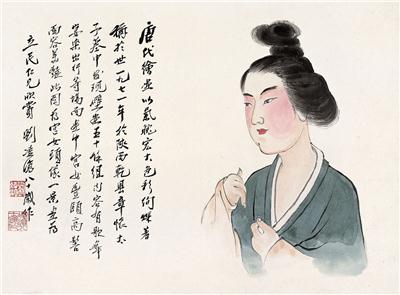 唐代繪畫以氣魄宏大色彩絢爛著
稱於世一九七一年於陝西乾縣章懷太
子墓中發現壁畫五十餘組內容有歌舞
宴樂出行等場面畫中宮女豐頤高髻
面容美麗此圖為宮女頭像一
立民仁兄欣賞 劉凌滄八十歲作